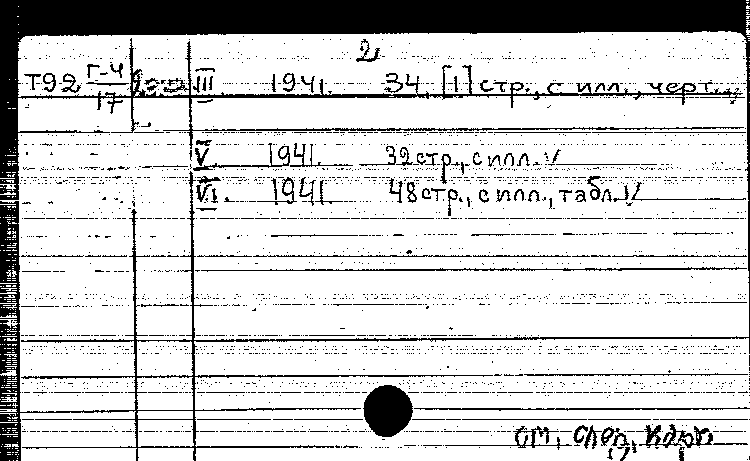 2
Т92 Г-4/17 III 1941. 34, [1] стр., с илл., черт.
V 1941. 32 стр., с илл.
VI. 1941. 48 стр., с илл., табл.
см. след. карт